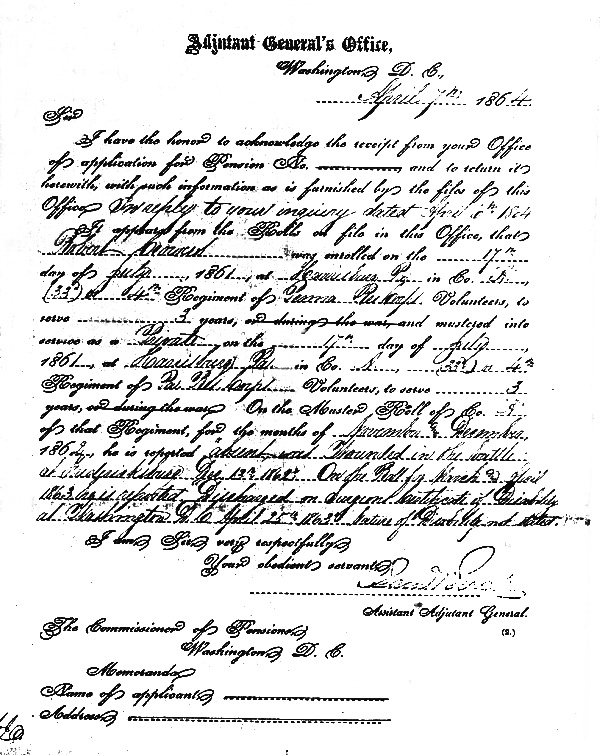 Adjutant General's Office,
Washington, D. C.,
April 7th 1864
Sir
I have the honor to acknowledge the receipt from your Office
of application for Pension No. and to return it
herewith, with such information as is furnished by the files of this
Office. In reply to your inquiry dated 1864
It appears from the Rolls on file in this Office, that
Robert was enrolled on the 17th
day of July, 1861, at Harrisburg Pa. in Co.
(33d) or 4th Regiment of Penna Res Corps Volunteers, to
serve 3 years, or during the war, and mustered into
service as a Private on the 17th day of July
1861, at Harrisburg Pa. in Co. (33d) or 4th
Regiment of Pa. Res Corps Volunteers, to serve 3
years, or during the war. On the Muster Roll of Co.
of that Regiment, for the months of November & December,
1862, he is reported absent Wounded in the battle
at Fredericksburg Dec 13th 1862. On the Roll for March & April
1863 he is reported Discharged on Surgeons Certificate of Disability
at Washington D.C. April 25th 1863. Nature of Disability not stated.
I am, Sir, very respectfully,
Your obedient servant,
Assistant Adjutant General.
(2.)
The Commissioner of Pensions,
Washington, D. C.
Memoranda
Name of applicant
Address